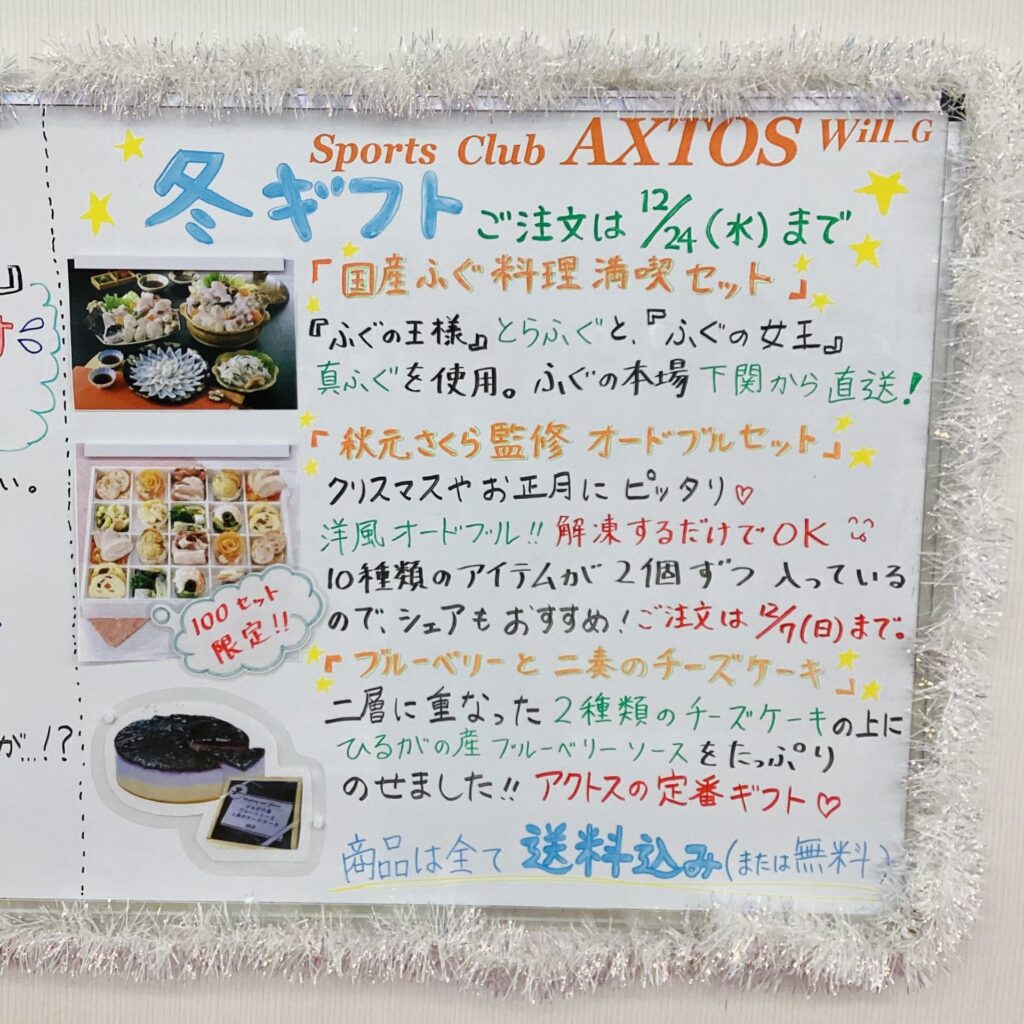 Sports Club AXTOS Will_G
冬ギフト ご注文は 12/24(水)まで
「国産ふぐ料理満喫セット」
『ふぐの王様』とらふぐと、『ふぐの女王』
真ふぐを使用。ふぐの本場下関から直送!
「秋元さくら監修 オードブルセット」
クリスマスやお正月に ピッタリ♡
洋風オードブル!! 解凍するだけでOK
10種類のアイテムが 2個ずつ 入っている
ので、シェアもおすすめ!ご注文は12/7(日)まで。
100セット
限定!!
「ブルーベリーと二奏のチーズケーキ」
二層に重なった2種類のチーズケーキの上に
ひるがの産ブルーベリーソースをたっぷり
のせました!! アクトスの定番ギフト♡
商品は全て 送料込み(または無料)
』
す
い。
が…!?